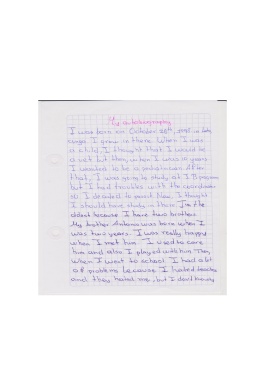 My autobiography
I was born on October 28th, 1995 in
I grew in there. When I was
a child I thought that I would be
a vet but then, when I was years
I wanted to be a After
that, I was going to study at I B
but I had troubles with the
so I decided to Now, I thought
I should have study in there. I'm the
oldest because I have two brothers
My brother Antonio was born when I
was two years. I was really happy
when I met him. I used to care
him and also I played with him. Then,
when I went to school I had a lot
of problems because I hated
and they hated me, but I don't